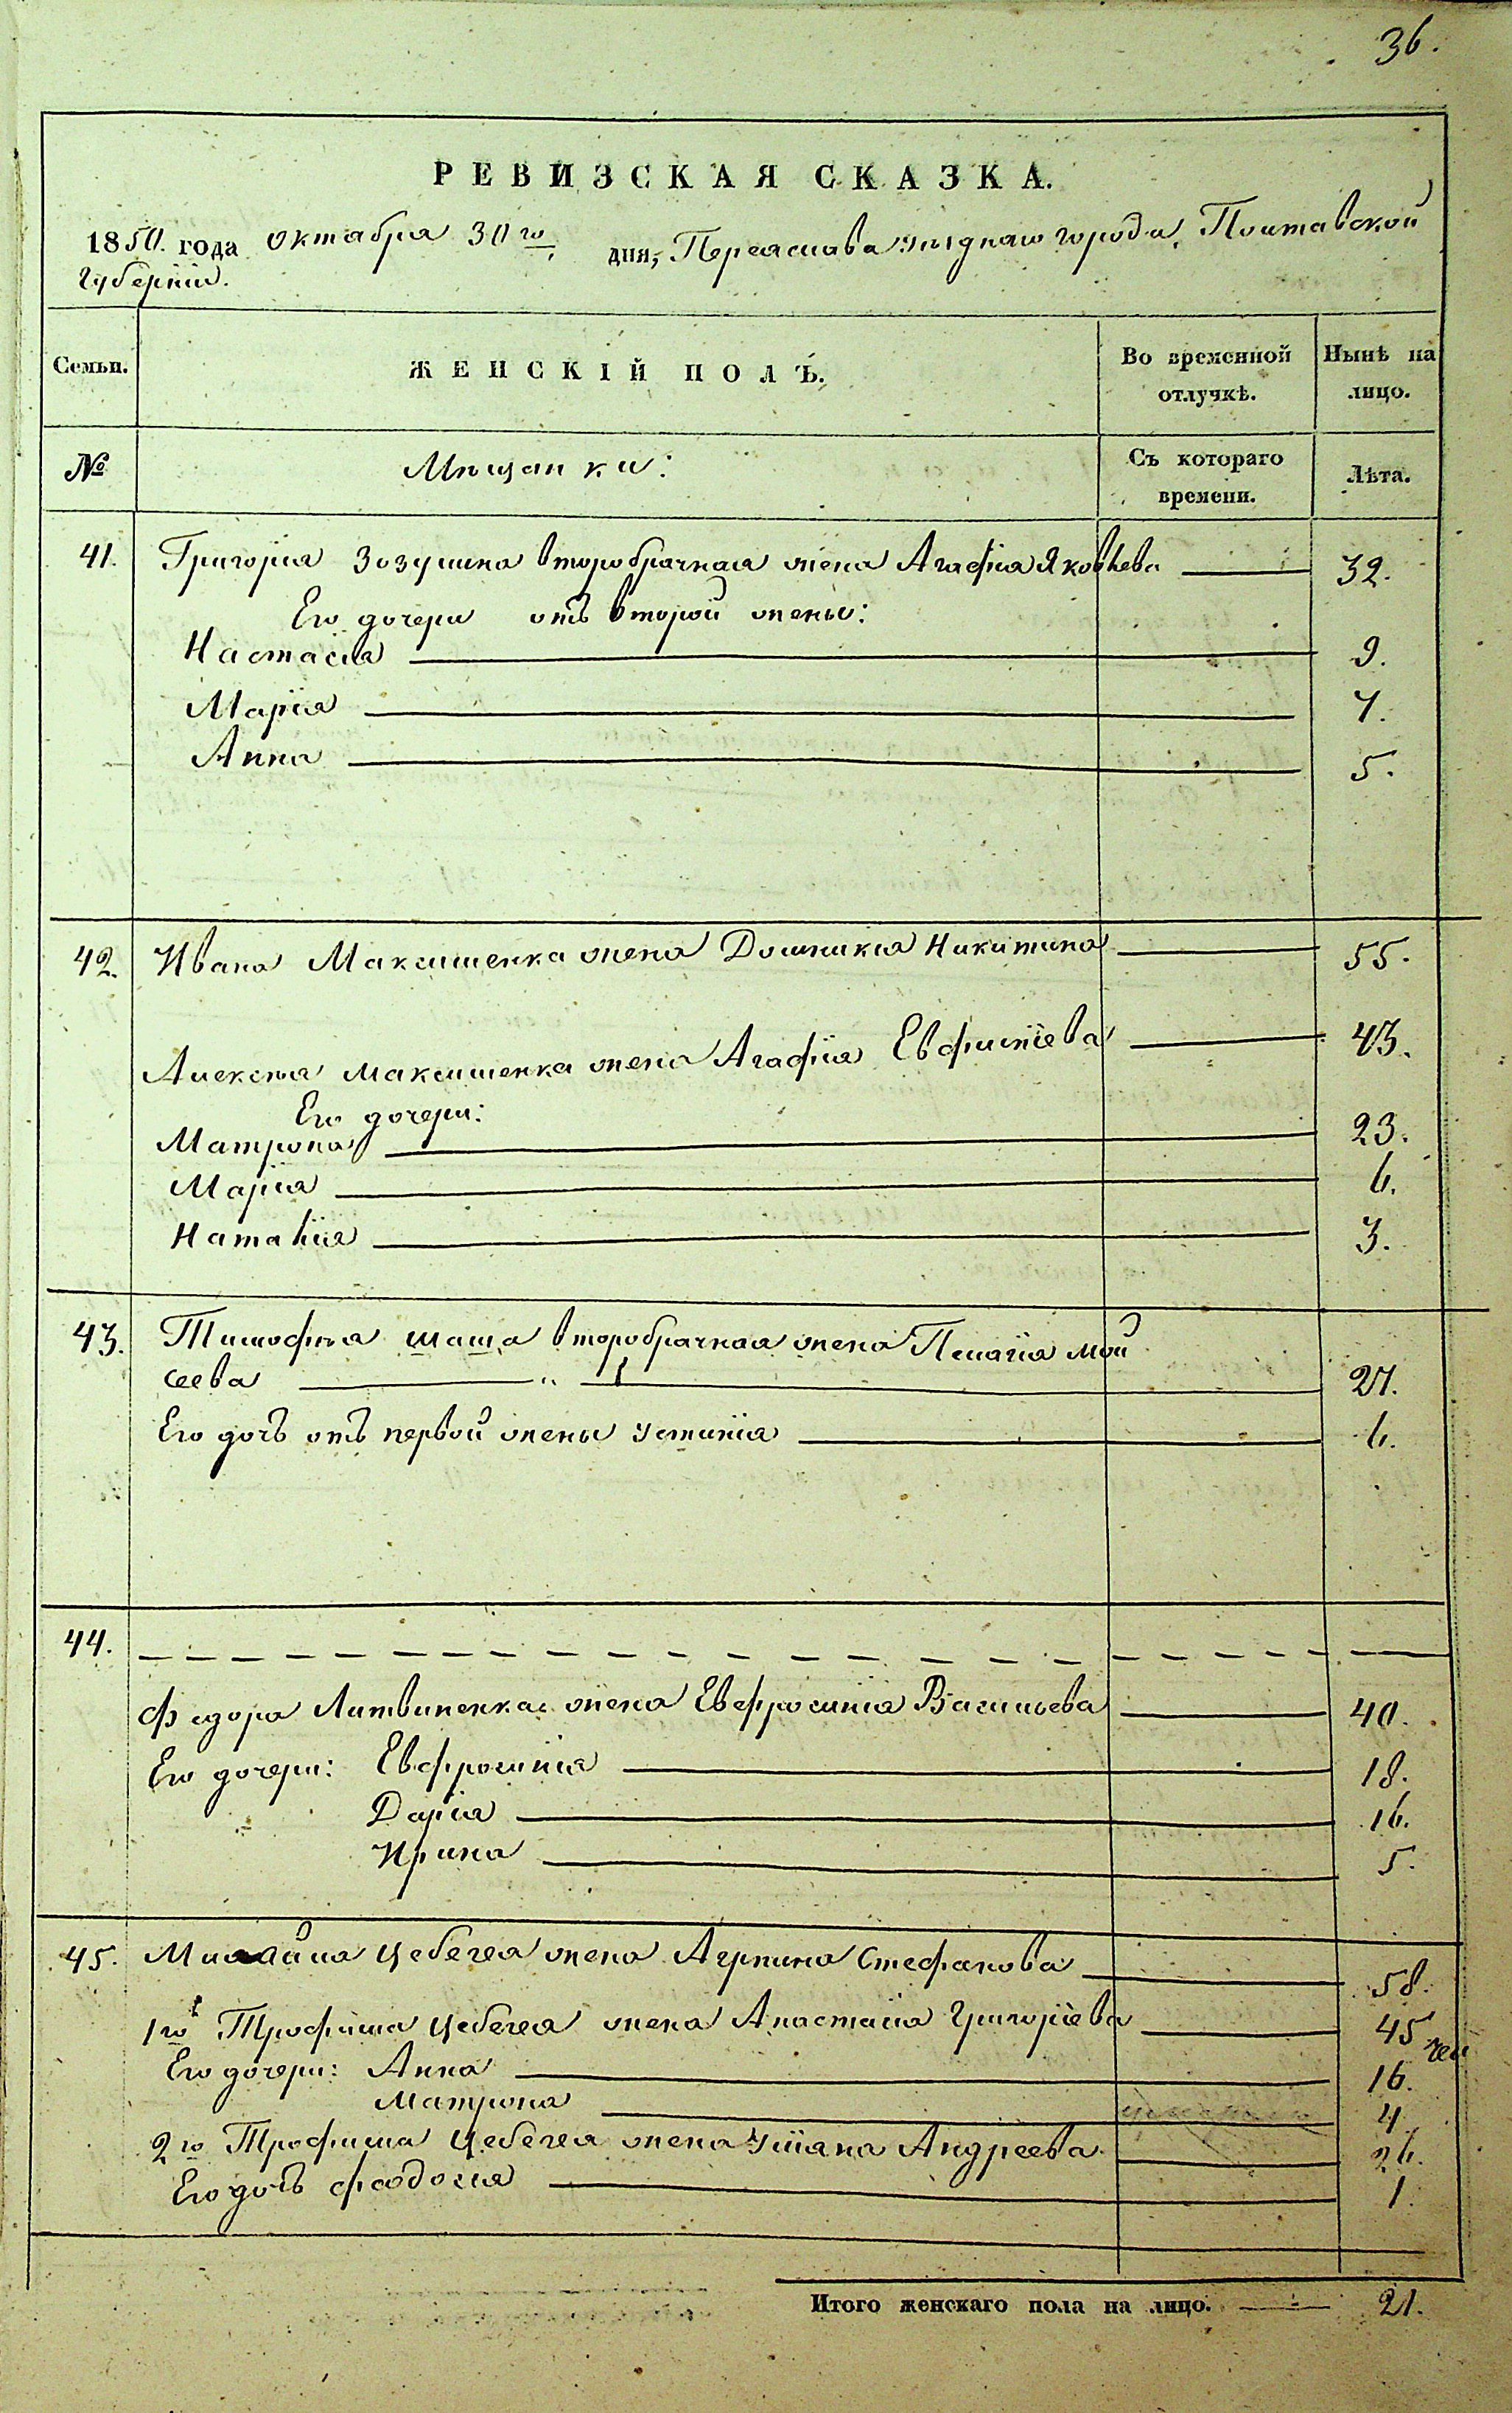 36.
РЕВИЗСКАЯ СКАЗКА.
1850. года октабря 30го дня, Переяслава уѣзднаго города, Полтавской
губерніи.
Семьи.
ЖЕНСКІЙ ПОЛЪ.
Во временной
отлучкѣ.
Нынѣ на
лицо.
№
Мѣщанки:
Съ котораго
времени.
Лѣта.
41. Григорія Зозулина второбрачная жена Агафія Яковлева 32.
Его дочери отъ второй жены:
Настасія 9.
Марія 7.
Анна 5.
42. Ивана Максименка жена Домникія Никитина 55.
Алексѣя Максименка жена Агафія Евфиміева 43.
Его дочери:
Матрона 23.
Марія 6.
Наталія 3.
43. Тимофѣя Шаша второбрачная жена Пелагія Мой
сеева 27.
Его дочь отъ первой жены Устинія 6.
44.
Федора Литвиненка жена Евфросинія Васильева 40.
Его дочери: Евфросинія 18.
Дарія 16.
Ирина 5.
45. Михайла Цебегея жена Агрпина Стефанова 58.
1го Трофима Цебегея жена Анастасія Григоріева 45
Его дочери: Анна 16.
Матрона 4
2го Трофима Цебегея жена Уліяна Андреева 26.
Его дочь Феодосія 1.
Итого женскаго пола на лицо. 21.